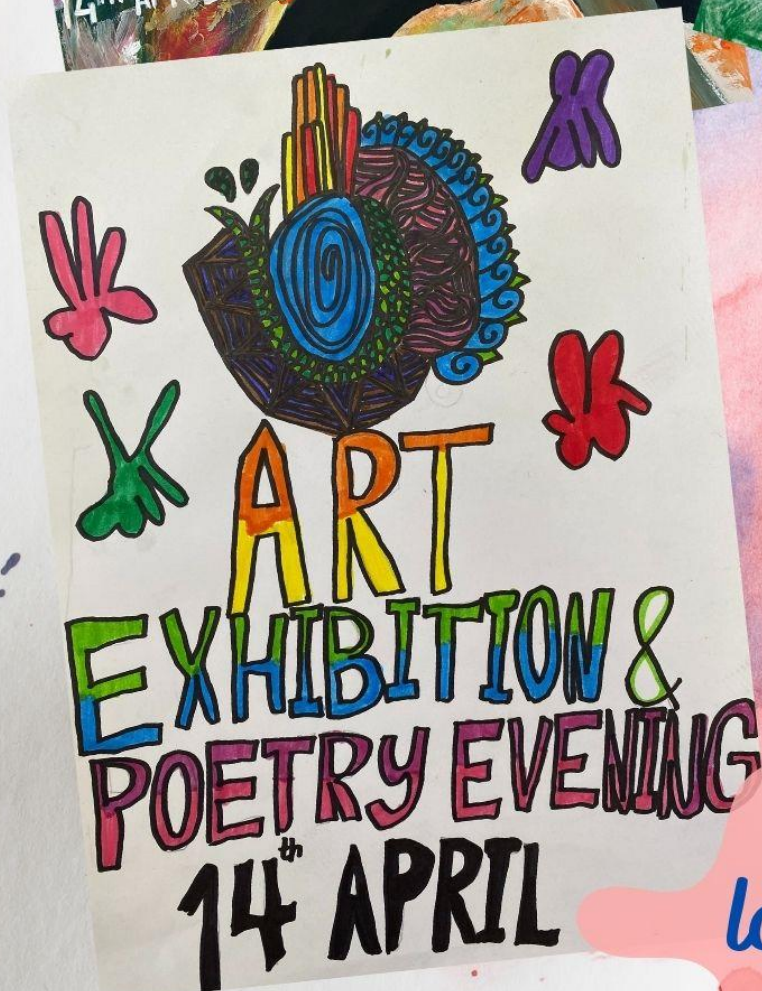 ART
EXHIBITION &
POETRY EVENING
14th APRIL